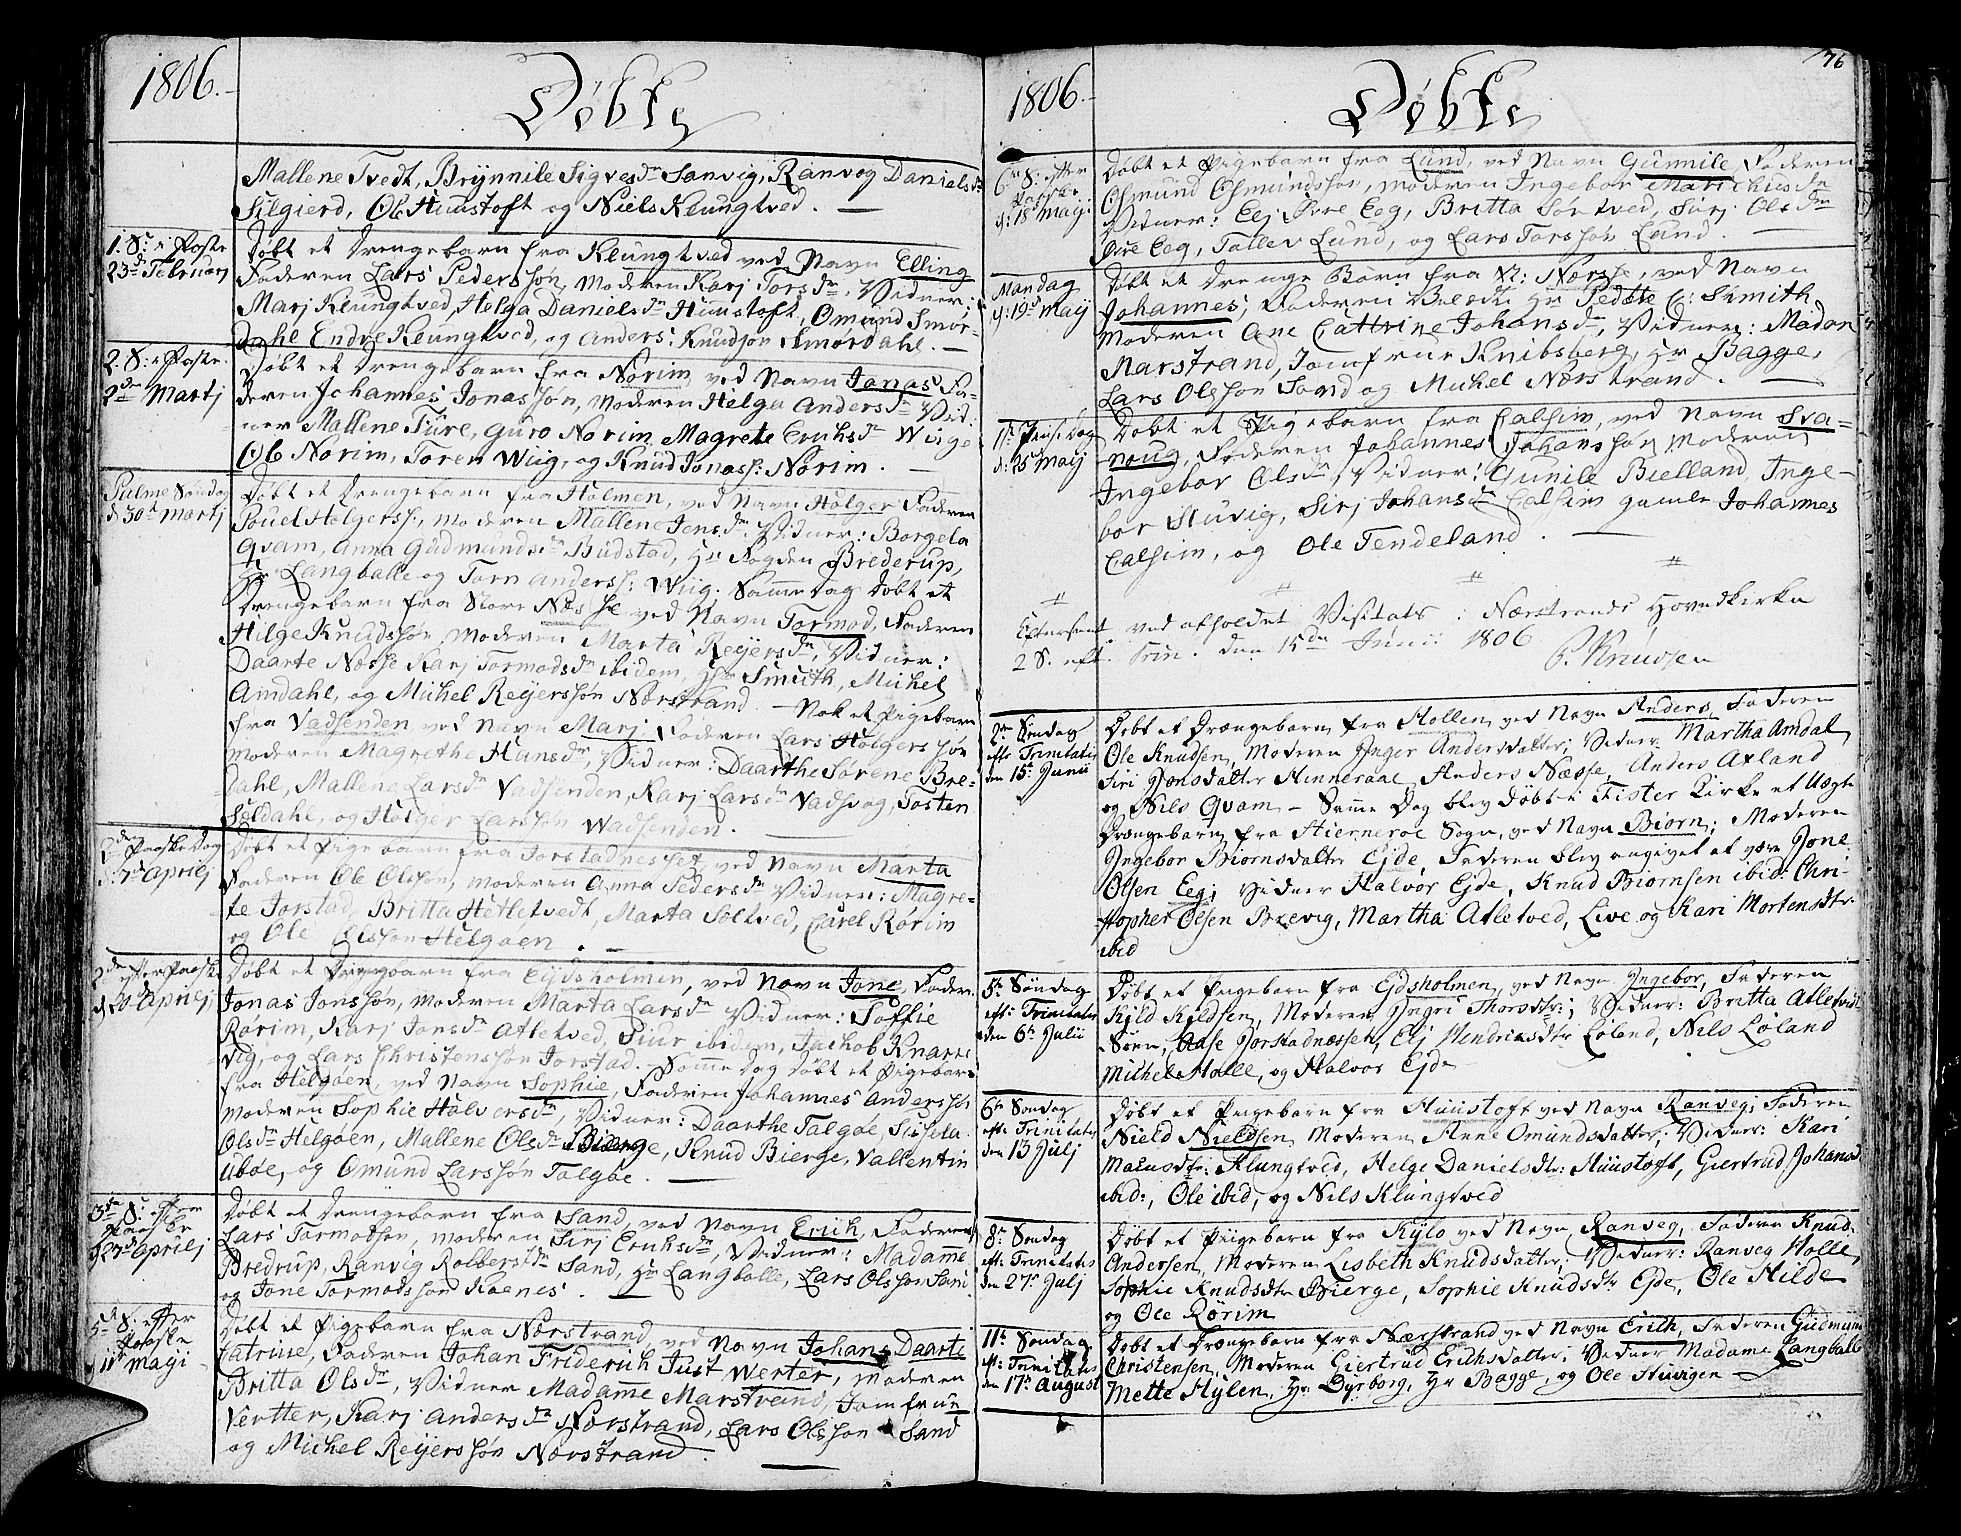 1806.
Døbte
Mallene Tvedt, Brynnile Sigvesdr Sanvig, Ranvog Danielsdr
Silgierd, Ole Huustoft og Niels Klungtved.
1. S: i Faste
23d Februarj
Døbt et Drengebarn fra Klungtved ved Navn Elling
Faderen Lars Pedersøn, Moderen Karj Torsdr, Vidner:
Marj Klungtved, Helga Danielsdr Huustoft, Omund Smør-
dahl Endre Klungtved, og Anders Knudsøn Smørdahl.
2. S: i Faste
2den Martj
Døbt et Drengebarn fra Norim ved Navn Jonas Fa-
deren Johannes Jonassøn, Moderen Helga Andersdr Vid-
ner Mallene Ture, Guro Norim Magrete Erichsdr Wiige
Ole Norim, Toren Wiig, og Knud Jonass: Norim.
Palme Søndag
d 30d Martj
Døbt et Drengebarn fra Holmen, ved Navn Holger Faderen
Pouel Holgerss:, Moderen Mallene Jensdr Vidner: Borgela
Qvam, Anna Gudmundsdr Budstad, Hr Fogden Brederup,
Hr Langballe og Torn Anderss: Wiig. Samme Dag Døbt et
Drengebarn fra Store Næsse ved Navn Tormod, Faderen
Hilge Knudssøn, Moderen Marta Reijersdr, Vidner:
Daarte Næsse Karj Tormodsdr ibidem, Hr Smith, Michel
Amdahl, og Michel Reijerssøn Norstrand. - Nok et Pigebarn
fra Vadsenden ved Navn Marj Faderen Lars Holgerssøn
Moderen Magrethe Hansdr, Vidner: Daarthe Sørene Bre-
Dahl, Mallene Larsdr Vadsenden, Karj Larsdr Vadsvog, Tosten
Seldahl, og Holger Larssøn Wadsenden.
2den Paaske Dag
d: 7d Aprilj
Døbt et Pige barn fra Jorstadnesset ved Navn Marta
Faderen Ole Olssøn, Moderen Anna Pedersdr Vidner: Magre-
te Jorstad, Britta Hetletvedt, Marta Soltved, Carel Rorim
og Ole Olssøn Helgøen.
2den efter Paaske
d 20 Aprilj
Døbt et Drengebarn fra Eijdsholmen, ved Navn Jone, Fader.
Jonas Jonssøn, Moderen Marta Larsdr Vidner: Soffie
Rørim, Karj Jonsdr Atletved, Siur ibidem, Jachob Knarte
vig, og Lars Christenssøn Jorstad. Samme Dag Døbt et Pigebarn
fra Helgøen, ved Navn Sophie, Faderen Johannes Anderssøn
Moderen Sophie Halversdr, Vidner: Daarthe Talgøe, Sissela
Olsdr Helgøen, Mallene Olsdr Bierge, Knud Bierge, Vallentin
Ubøe, og Omund Larssøn Talgøe.
3de S: efter
Paaske
d 27d Aprilj
Døbt et Drengebarn fra Sand, ved Navn Erich, Faderen
Lars Tormodsøn, Moderen Sirj Erichsdr, Vidner: Madamme
Bredrup, Ranvig Rolbersdr Sand, Hr Langballe, Lars Olssøn Sand
og Jone Tormodssøn Koenes.
5te S: efter
Paaske
11d Magi
Døbt et Pigebarn fra Norstrand ved Navn Johan Daarte
Catrine, Faderen Johan Friderich Just Werter, Moderen
Britta Olsdr, Vidner Madamme Marstrand, Jomfrue
Vertter, Karj Andersdr Norstrand, Lars Olssøn Sand
og Michel Reijerssøn Norstrand.
76
1806.
Døbte
6te S: efter
Paaske
d: 18d Maij
Døbt et Pigebarn fra Lund, ved Navn Gunnile Faderen
Osmund Osmundssøn, Moderen Ingebor Marichusdr
Vidner: Elj Øvre Eeg, Britta Søntved, Sirj Olsdr
Øvre Eeg, Tallev Lund, og Lars Torssøn Lund.
Mandag
d: 19d Maij
Døbt et Drenge Barn fra N: Næsse, ved Navn
Johannes, Faderen Hr Peder C: Smith,
Moderen Ane Cattrine Johansdr, Vidner: Madam
Marstrand, Jomfrue Knibsberg, Hr Bagge,
Lars Olssøn Sand og Michel Nærstrand.
1ste Pinse Dag
d: 25 Maij
Døbt et Pigebarn fra Calsim, ved Navn Sva-
noug, Faderen Johannes Johanssøn Moderen
Ingebor Olsdr, Vidner: Gunile Bielland Inge-
bor Stuvig, Sirj Johansdr Calsim gamle Johannes
Calsim, og Ole Tendeland.
Efterseet ved afholdet Visitats i Nærstrands Hovedkirke
2 S. eft. Trin. den 15de Junii 1806
P. Knudsen
2den Søndag
efter Trinitatis
den 15de Junii
Døbt et Drængebarn fra Hollen, ved Navn Anders, Faderen
Ole Knudsen, Moderen Inger Andersdatter; Vidner Martha Amdal,
Siri Jonsdatter Hinneraae, Anders Næsse, Anders Axland
og Nils Qvam - Samme Dag blev Døbt i Fister Kirke et Uægte
Drængebarn fra Hierneroe Sogn, ved Navn Biørn; Moderen
Ingebor Biørnsdatter Ejde, Faderen blev angivet at være Jone
Olsen Eeg; Vidner Halvor Ejde, Knud Biørnsen ibid: Chri-
stopher Olsen Brevig, Martha Atletved, Live og Kari Mortensdtr.
ibid
5te Søndag
eft: Trinitatis
den 6te Julii
Døbt et Pigebarn fra Ejdsholmen, ved Navn Ingebor, Faderen
Kield Kieldsen, Moderen Ingri Thorsdtr; Vidner: Britta Atletvedt
Søen, Aase Jorstadnæsset, Elj Hendricsdtr Løland, Nils Løland
Michel Holle, og Halvor Ejde
6te Søndag
eft: Trinitatis
den 13 Julj
Døbt et Pigebarn fra Huustoft ved Navn Ranveg; Faderen
Nield Nieldsen, Moderen Anne Omundsdatter; Vidner: Kari
Klungtved, Helge Danielsdtr: Huustoft, Giertrud Johansd
ibid:, Ole ibid, og Nils Klungtved
8de Søndag
eft: Trinitatis
den 27de Julj
Døbt et Piigebarn fra Kylo ved Navn Ranveg, Faderen Knud
Andersen, Moderen Lisbeth Knudsdatter; Vidner: Ranveg Holle,
Sophie Knudsdtr Bierge, Sophie Knudsdtr Ejde, Ole Hilde
og Ole Rørim
11te Søndag
eft: Trinitatis
den 17de August
Døbt et Drængebarn fra Nærstrand ved Navn Erich, Faderen Gudmund
Christensen, Moderen Giertrud Erichsdatter; Vidner Madame Langballe
Mette Hylen, Hr Dyrborg, Hr Bagge, og Ole Huvigen